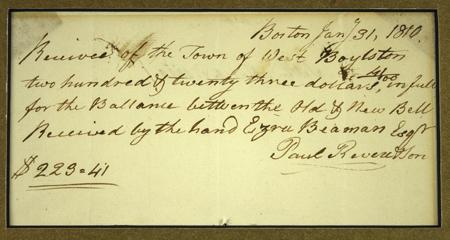 Boston Jany 31, 1810.
Received of the Town of West Boylston
two hundred & twenty three dollars 41/100 in full
for the Ballance between the Old & New Bell
Received by the hand Ezra Beaman Esqr
Paul Revere & Son
$ 223=41